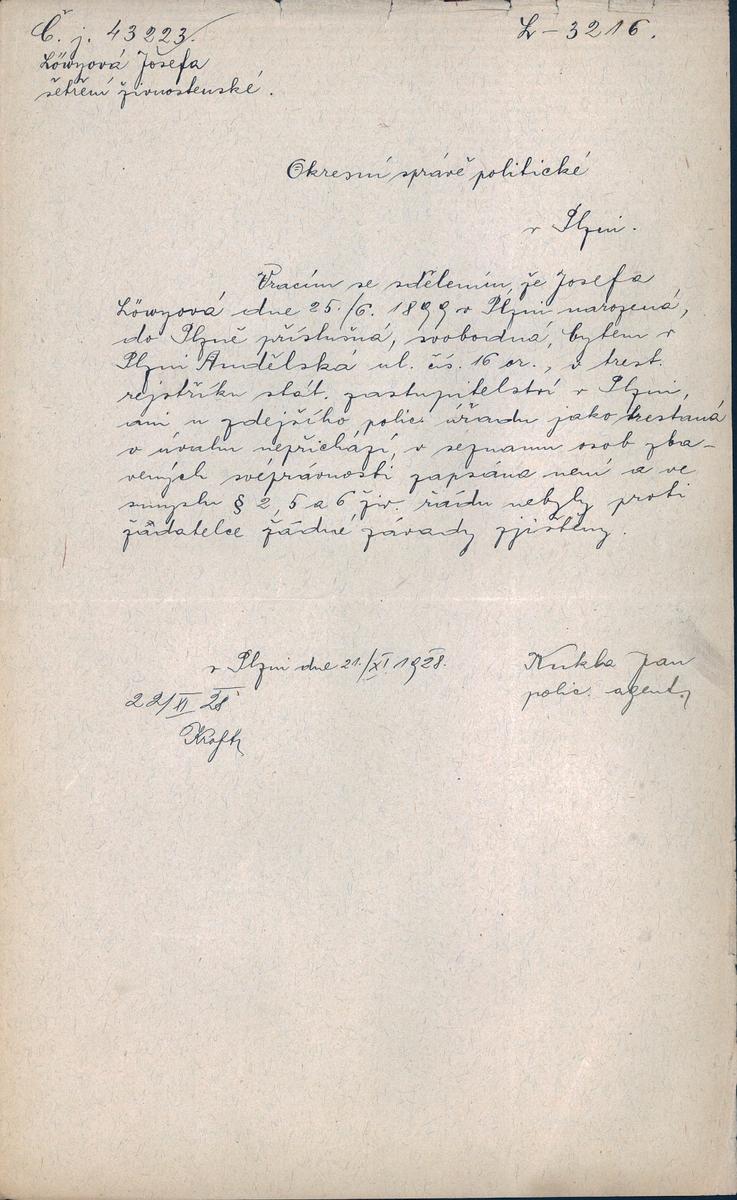 Č. j. 43223.
L – 3216.
Löwyová Josefa
šetření živnostenské.
Okresní správě politické
v Plzni.
Vracím se sdělením, že Josefa
Löwyová dne 25./6. 1899 v Plzni narozená,
do Plzně příslušná, svobodná, bytem v
Plzni Andělská ul. čís. 16 or., v trest.
rejstříku stát. zastupitelství v Plzni,
ani u zdejšího polic. úřadu jako trestaná
v úvahu nepřichází, v seznamu osob zba-
vených svéprávnosti zapsána není a ve
smyslu § 2, 5 a 6 živ. řádu nebyly proti
žadatelce žádné závady zjištěny.
v Plzni dne 21./XI. 1928.
Kukla Jan
polic. agent
22/XI 28